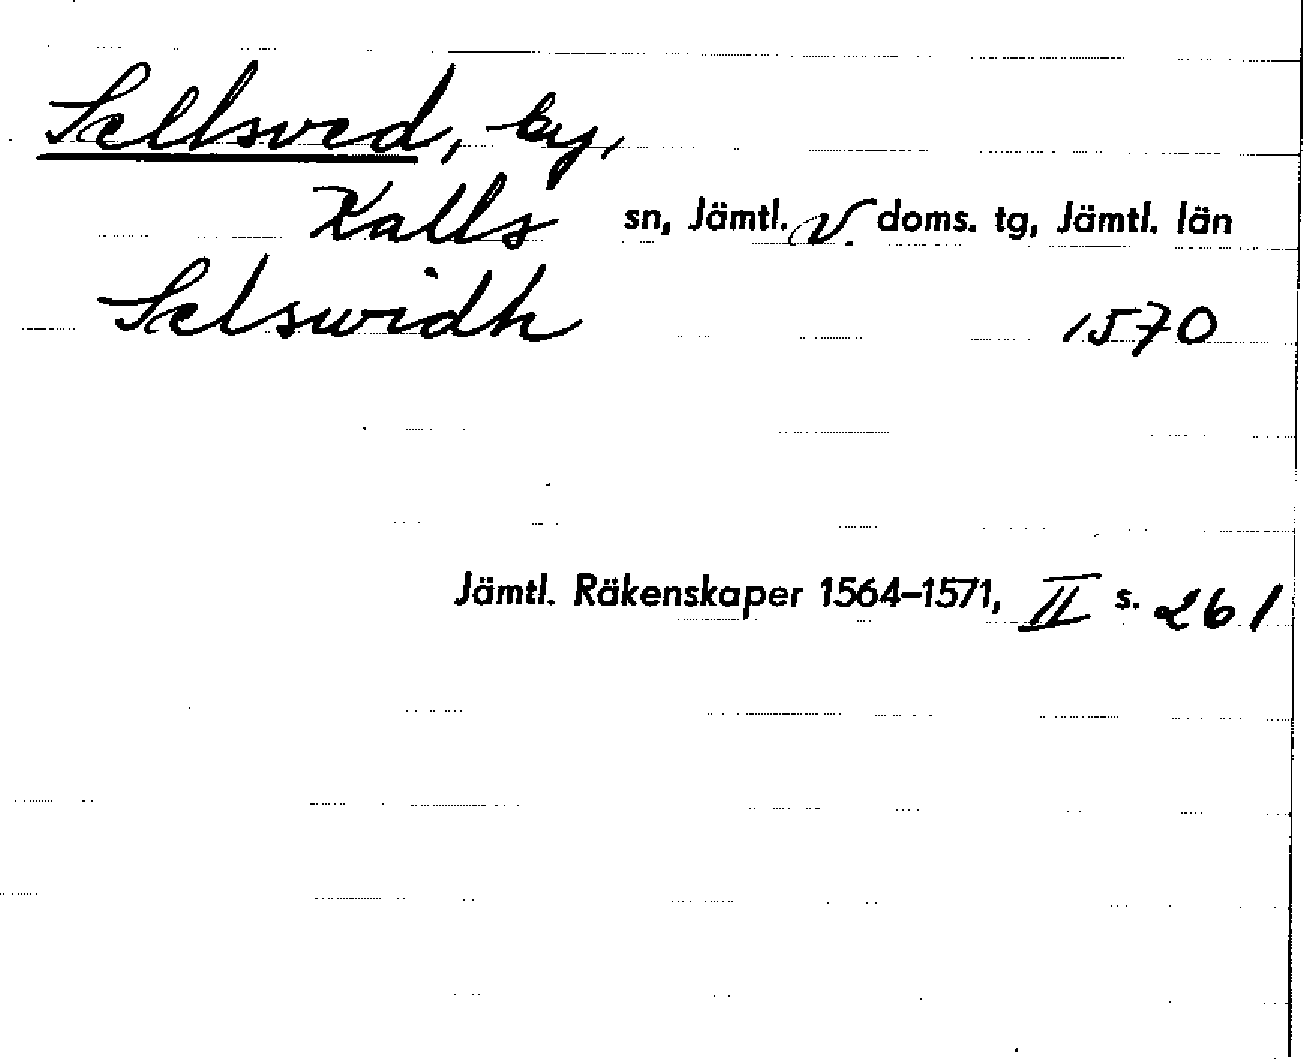 Sellsved, by,
Kalls sn, Jämtl. v. doms. tg, Jämtl. län
Selswidh 1570
Jämtl. Räkenskaper 1564–1571, II s. 261